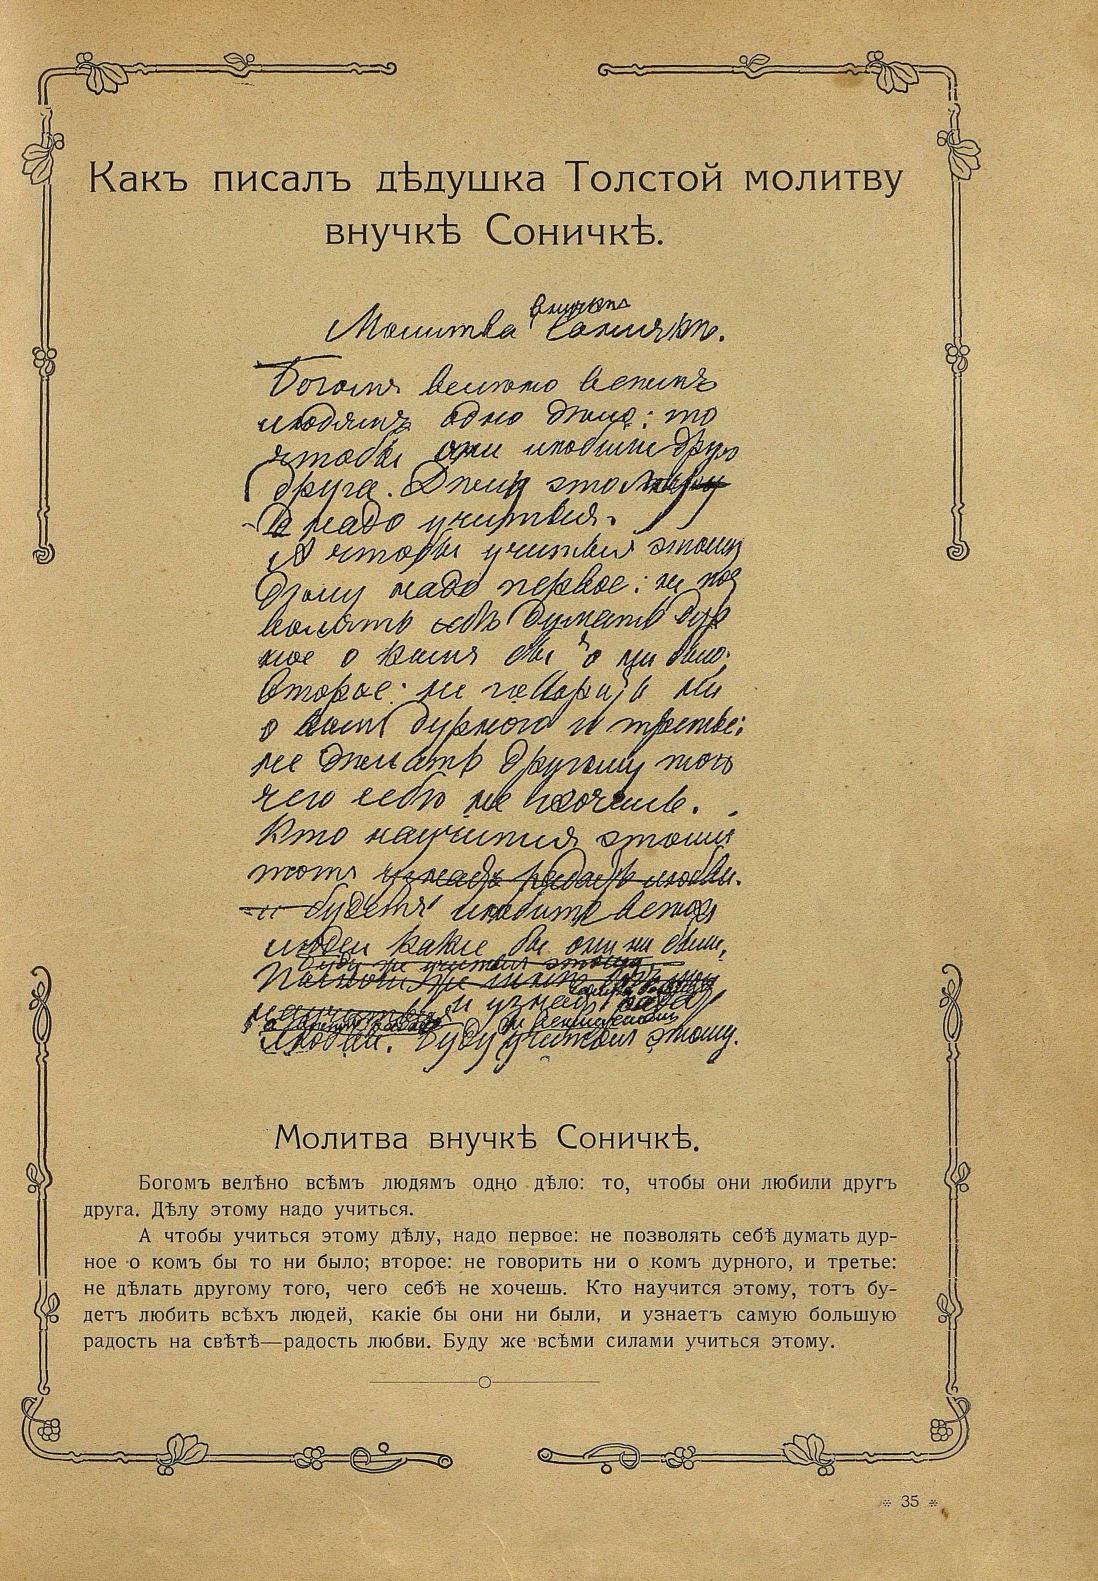 Какъ писалъ дѣдушка Толстой молитву
внучкѣ Соничкѣ.
внучкѣ
Молитва Соничкѣ.
Богомъ велѣно всѣмъ
людямъ одно дѣло: то
чтобы они любили другъ
друга. Дѣлу этому
надо учиться.
А чтобы учиться этому
дѣлу надо первое: не поз
волять себѣ думать дур
ное о комъ бы то ни было.
второе: не говорить ни
о комъ дурного и третье:
не дѣлать другому того
чего себѣ не хочешь.
Кто научится этому
тотъ узнаетъ радость любви.
будетъ любить всѣхъ
людей какие бы они ни были,
и узнаетъ
любви. Буду учиться этому.
Молитва внучкѣ Соничкѣ.
Богомъ велѣно всѣмъ людямъ одно дѣло: то, чтобы они любили другъ
друга. Дѣлу этому надо учиться.
А чтобы учиться этому дѣлу, надо первое: не позволять себѣ думать дур-
ное о комъ бы то ни было; второе: не говорить ни о комъ дурного, и третье:
не дѣлать другому того, чего себѣ не хочешь. Кто научится этому, тотъ бу-
детъ любить всѣхъ людей, какіе бы они ни были, и узнаетъ самую большую
радость на свѣтѣ—радость любви. Буду же всѣми силами учиться этому.
35